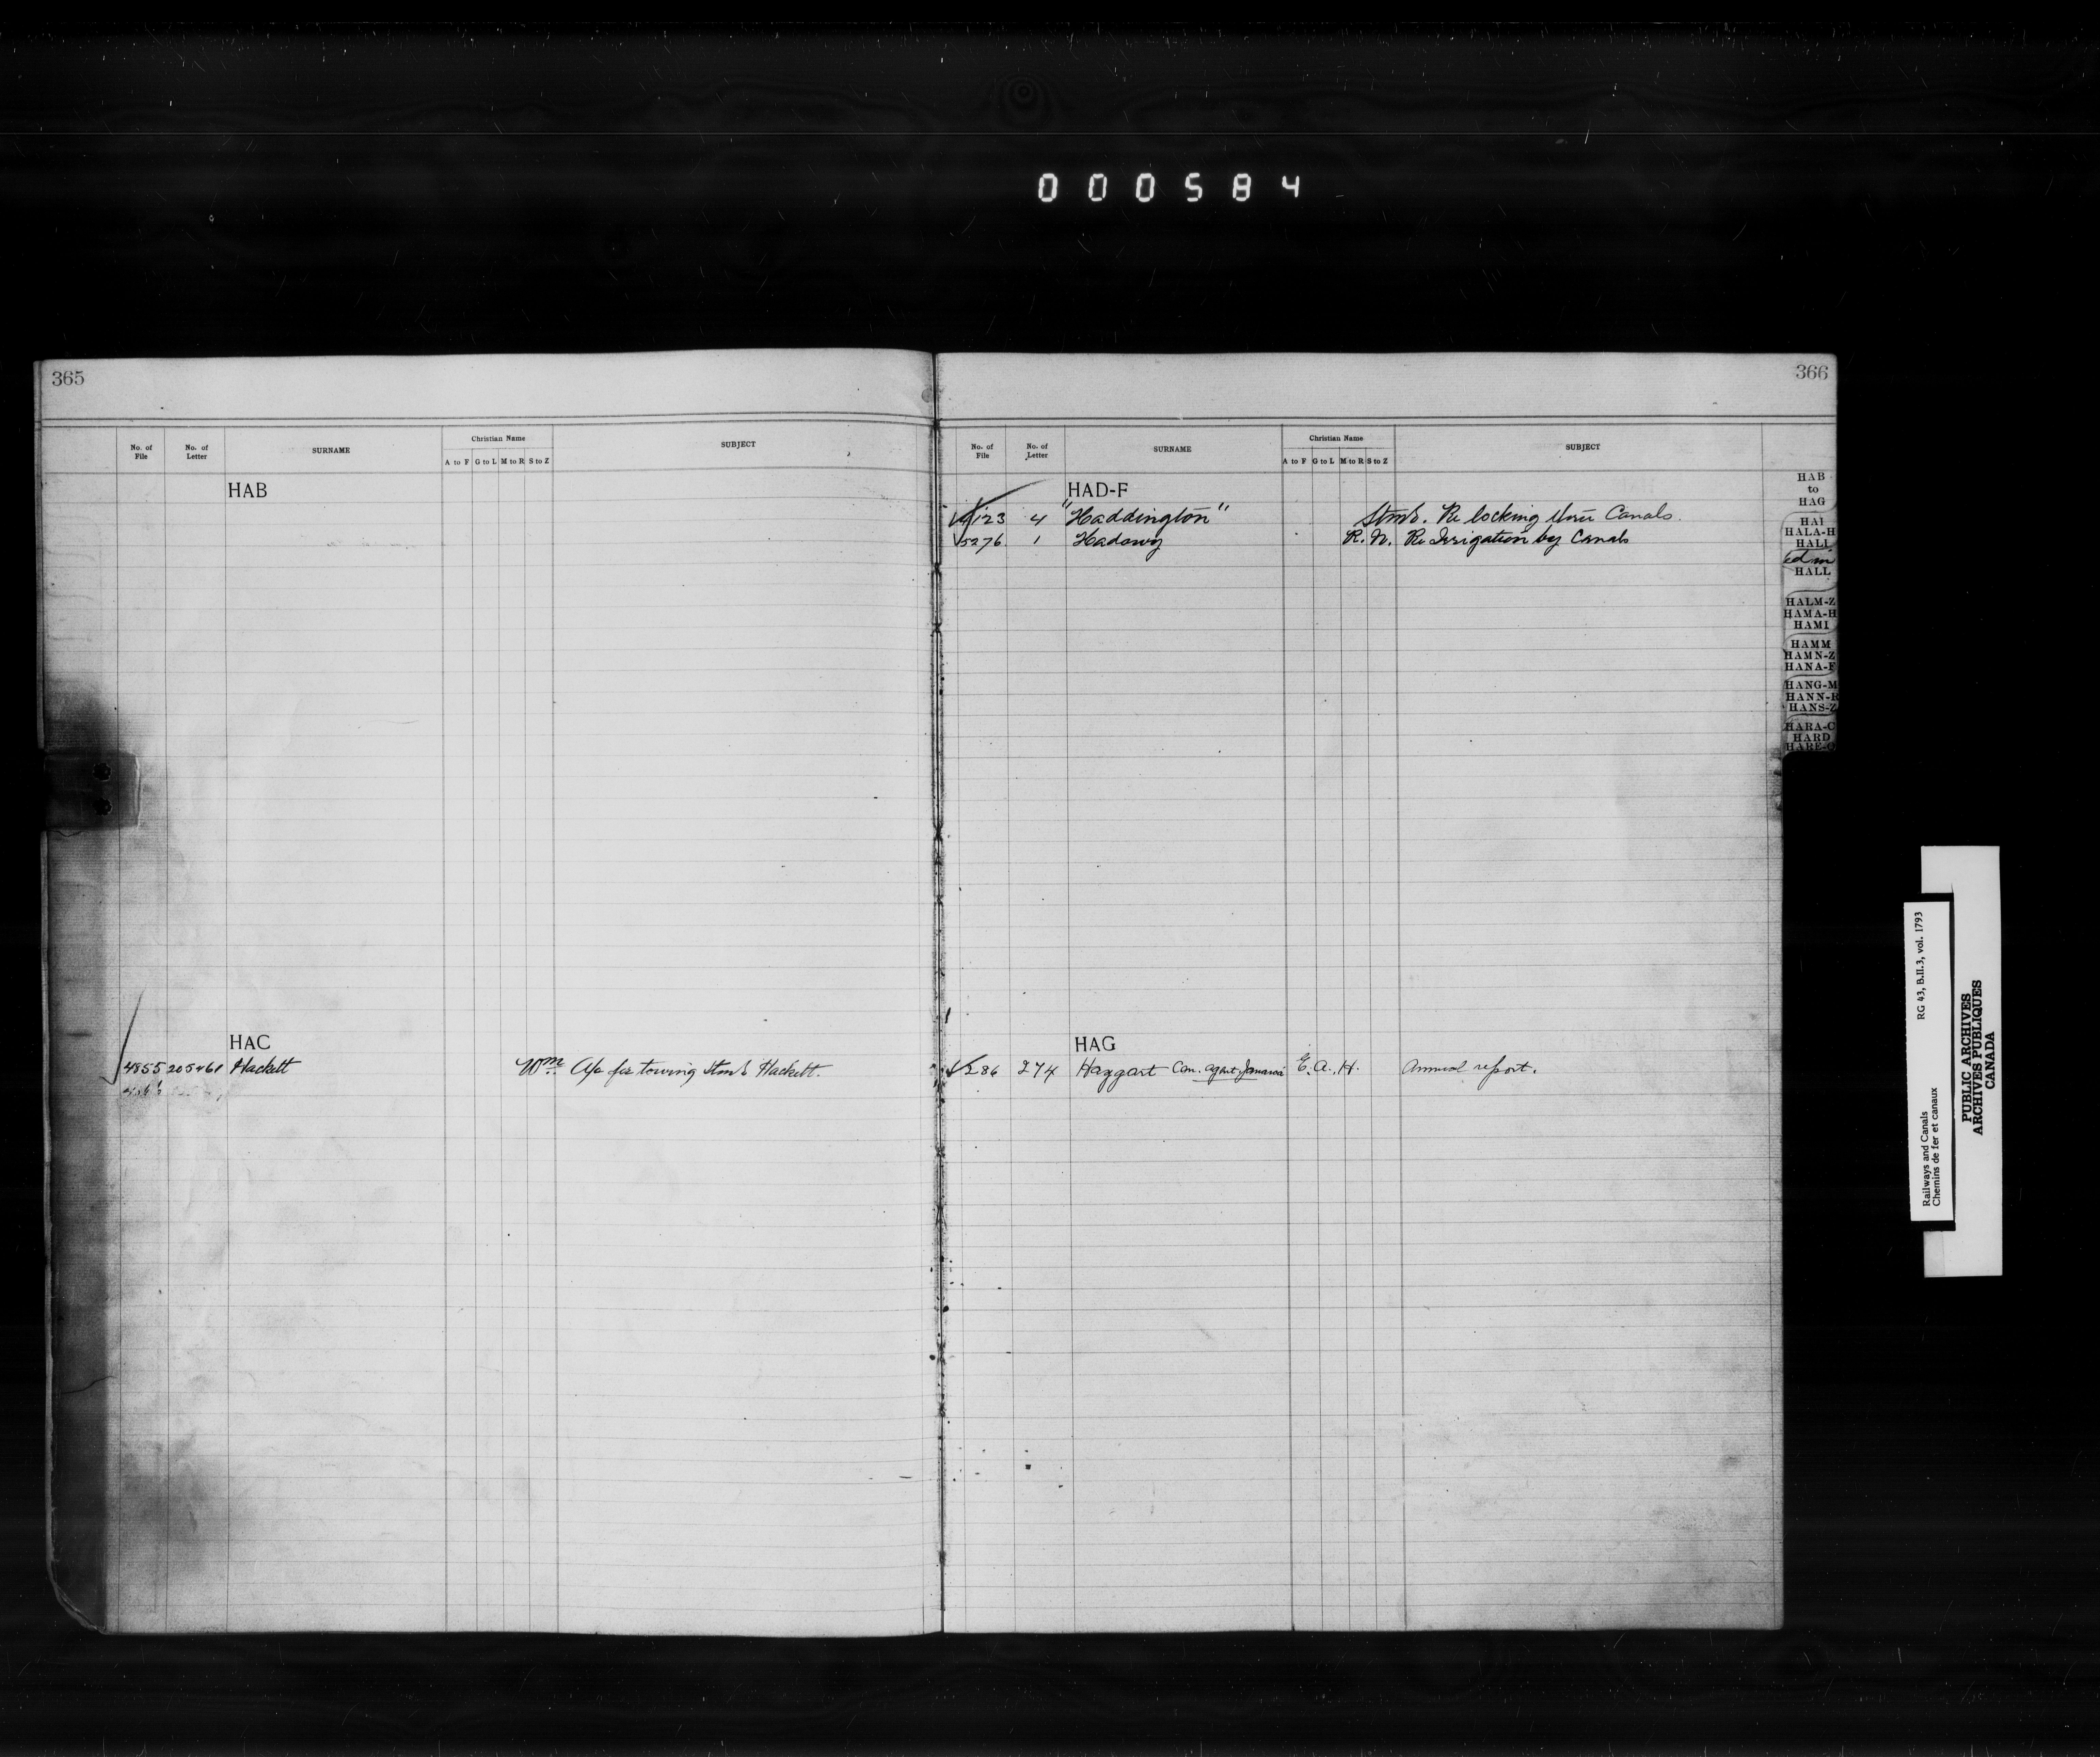 000584
365
No. of File No. of Letter SURNAME Christian Name A to F G to L M to R S to Z SUBJECT
HAB
HAC
4855 205461 Hackett Wm. A/c for towing Stmr Hackett.
366
No. of File No. of Letter SURNAME Christian Name A to F G to L M to R S to Z SUBJECT
HAD-F
123 4 "Haddington" Stmr. Re locking thro Canals.
5276 1 Hadowy R. N. Re Irrigation by Canals
HAG
286 274 Haggart Com. agent Jamaica E. A. H. Annual report.
HAB
to
HAG
HAI
HALA-H
HALL
HALL
HALM-Z
HAMA-H
HAMI
HAMM
HAMN-Z
HANA-F
HANG-M
HANN-R
HANS-Z
HARA-C
HARD
Railways and Canals RG 43, B.II.3, vol. 1793
Chemins de fer et canaux
PUBLIC ARCHIVES
ARCHIVES PUBLIQUES
CANADA